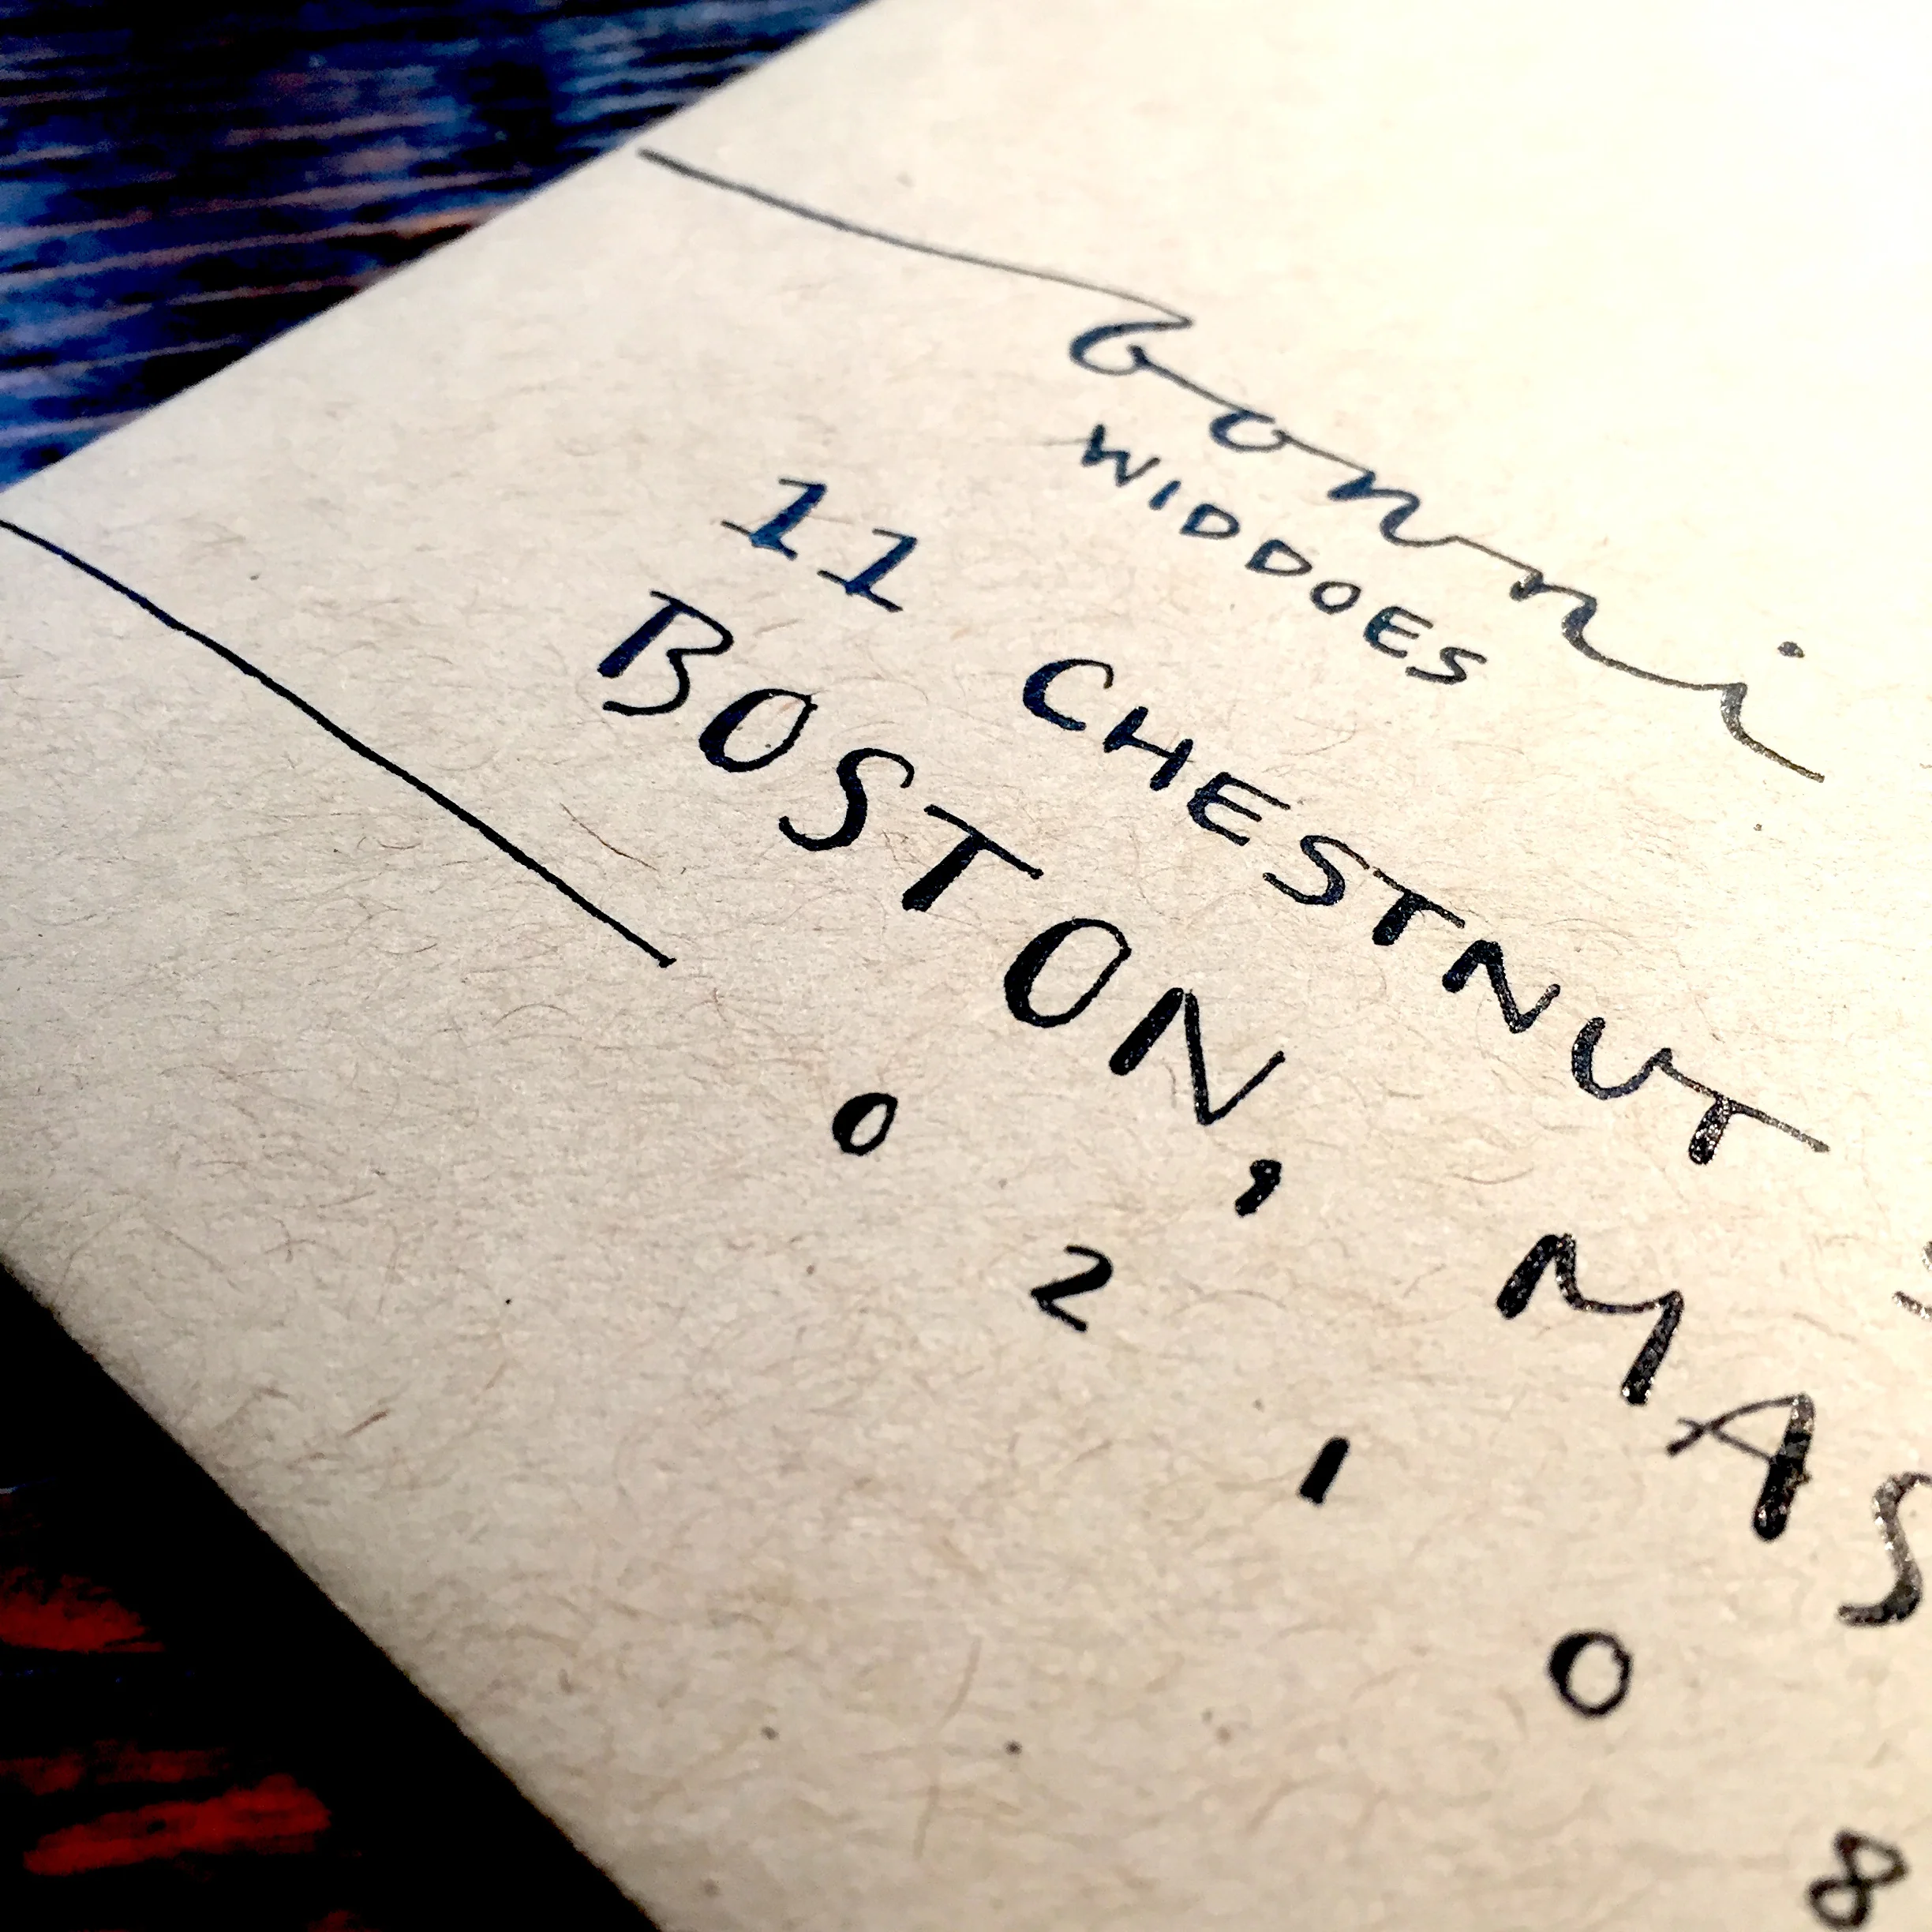 bonni
WIDDOES
11 CHESTNUT
BOSTON, MAS
0 2 1 0 8